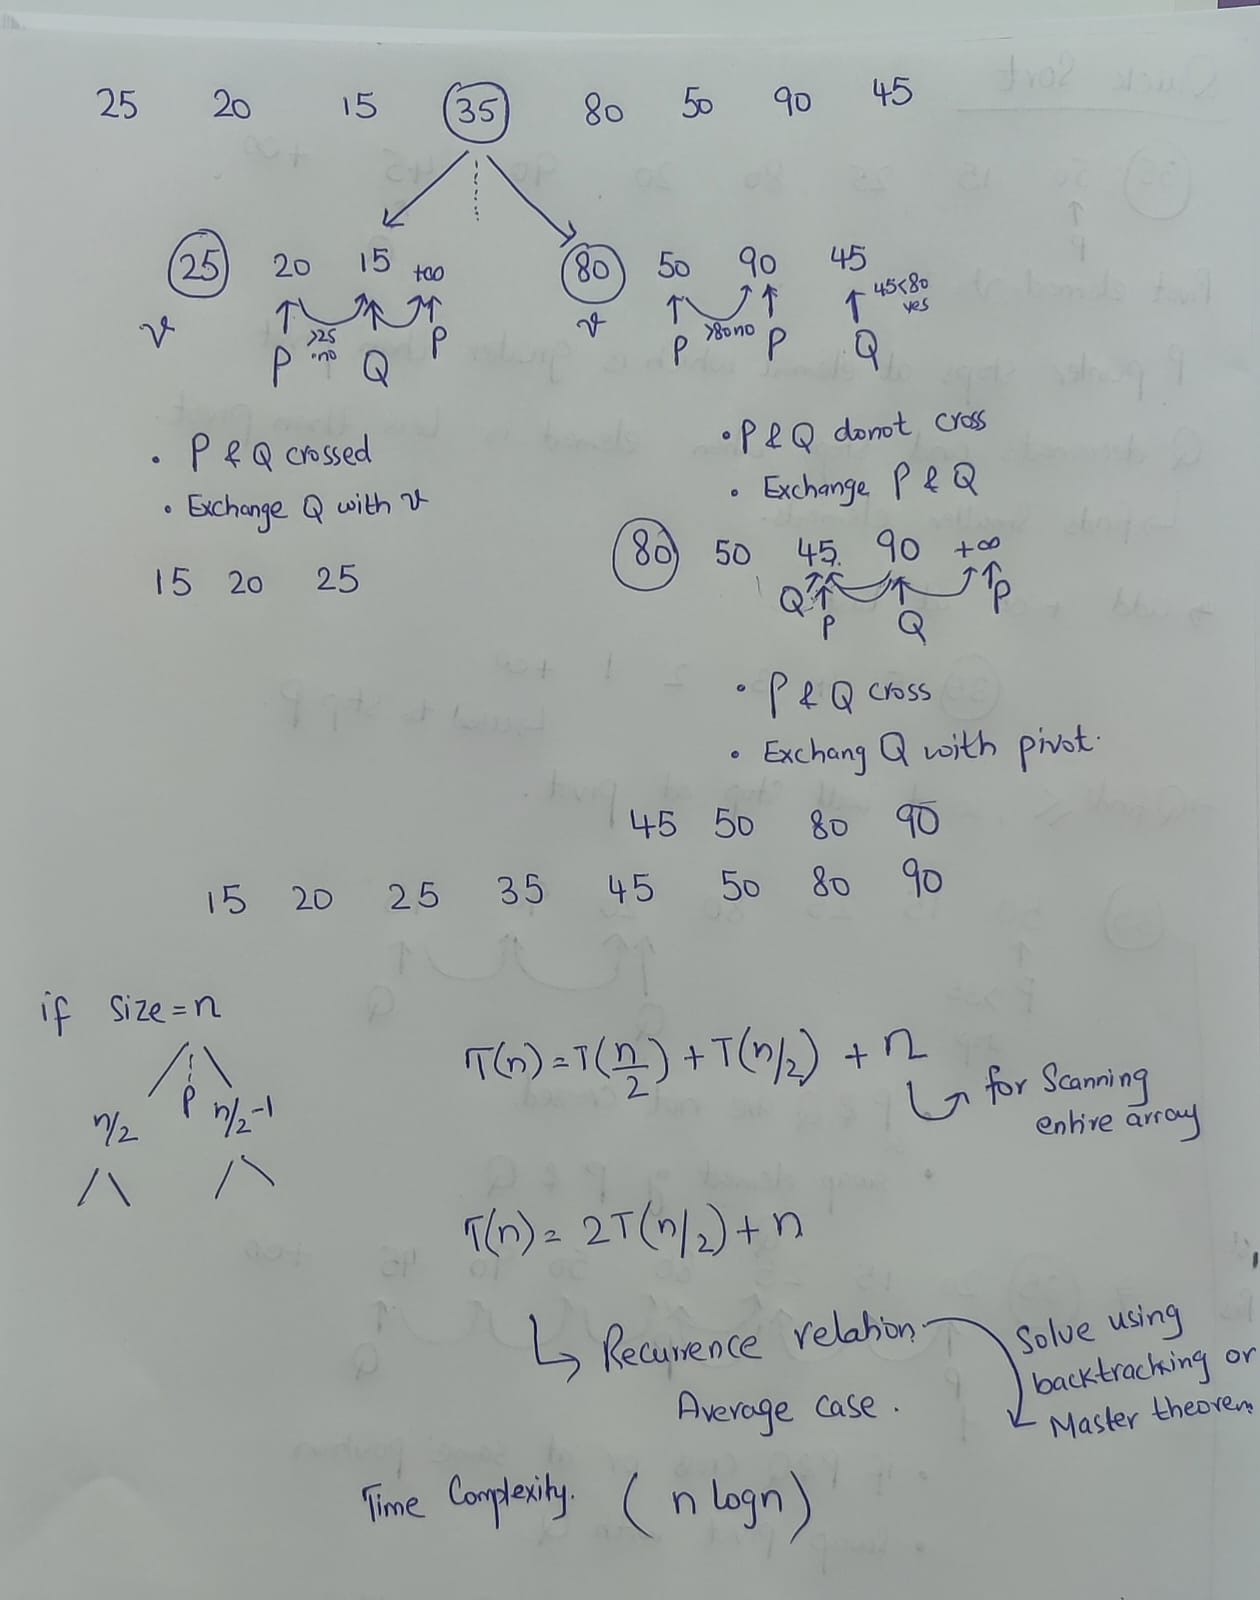 25 20 15 35 80 50 90 45
25 20 15 +∞ 80 50 90 45
45<80
yes
v P >25 Q P v P >80 no P Q
no
• P & Q crossed
• Exchange Q with v
15 20 25
• P & Q donot cross
• Exchange P & Q
80 50 45 90 +∞
Q P Q P
• P & Q cross
• Exchang Q with pivot.
45 50 80 90
15 20 25 35 45 50 80 90
if size = n
n/2 P n/2-1
T(n) = T(n/2) + T(n/2) + n
for Scanning
entire array
T(n) = 2T(n/2) + n
Recurrence relation
Average case.
Solve using
backtracking or
Master theorem
Time Complexity. (n logn)